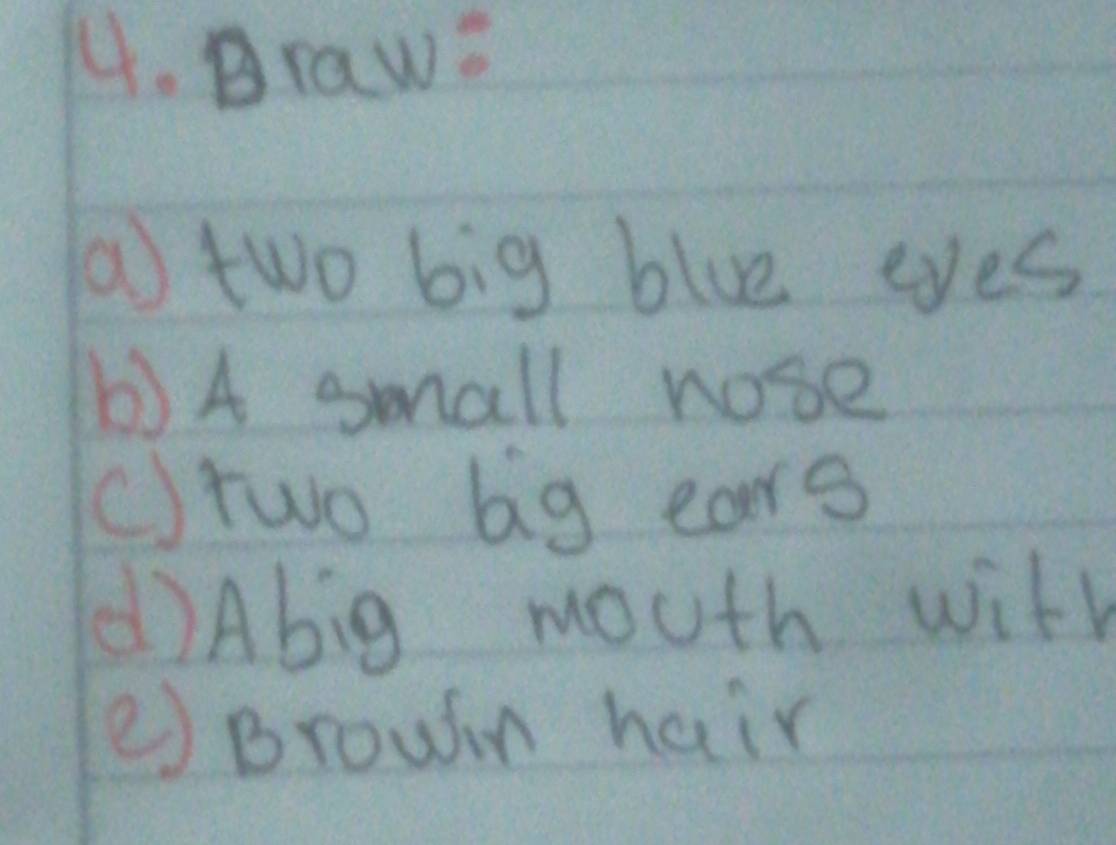 4. Draw:
a) two big blue eyes
b) A small nose
c) two big ears
d) A big mouth with
e) Browin hair